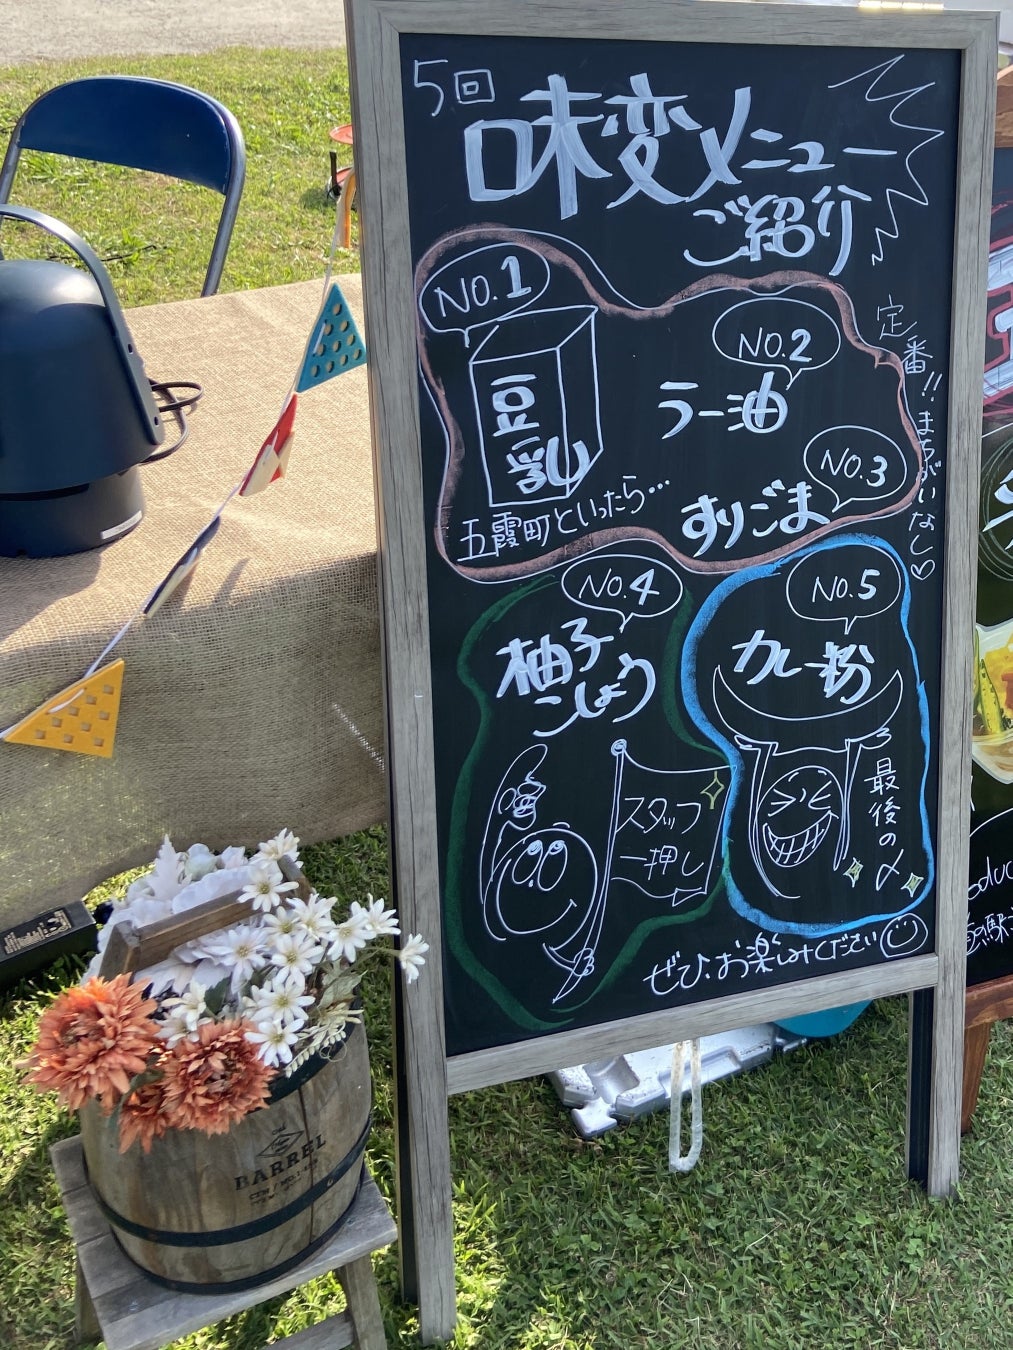 5回
味変メニュー
ご紹介
NO.1
豆乳
五霞町といったら…
NO.2
ラー油
NO.3
すりごま
定番!!まちがいなし♡
NO.4
柚子
こしょう
スタッフ
一押し
NO.5
カレー粉
最後の〆
ぜひ、お楽しみください
BARREL